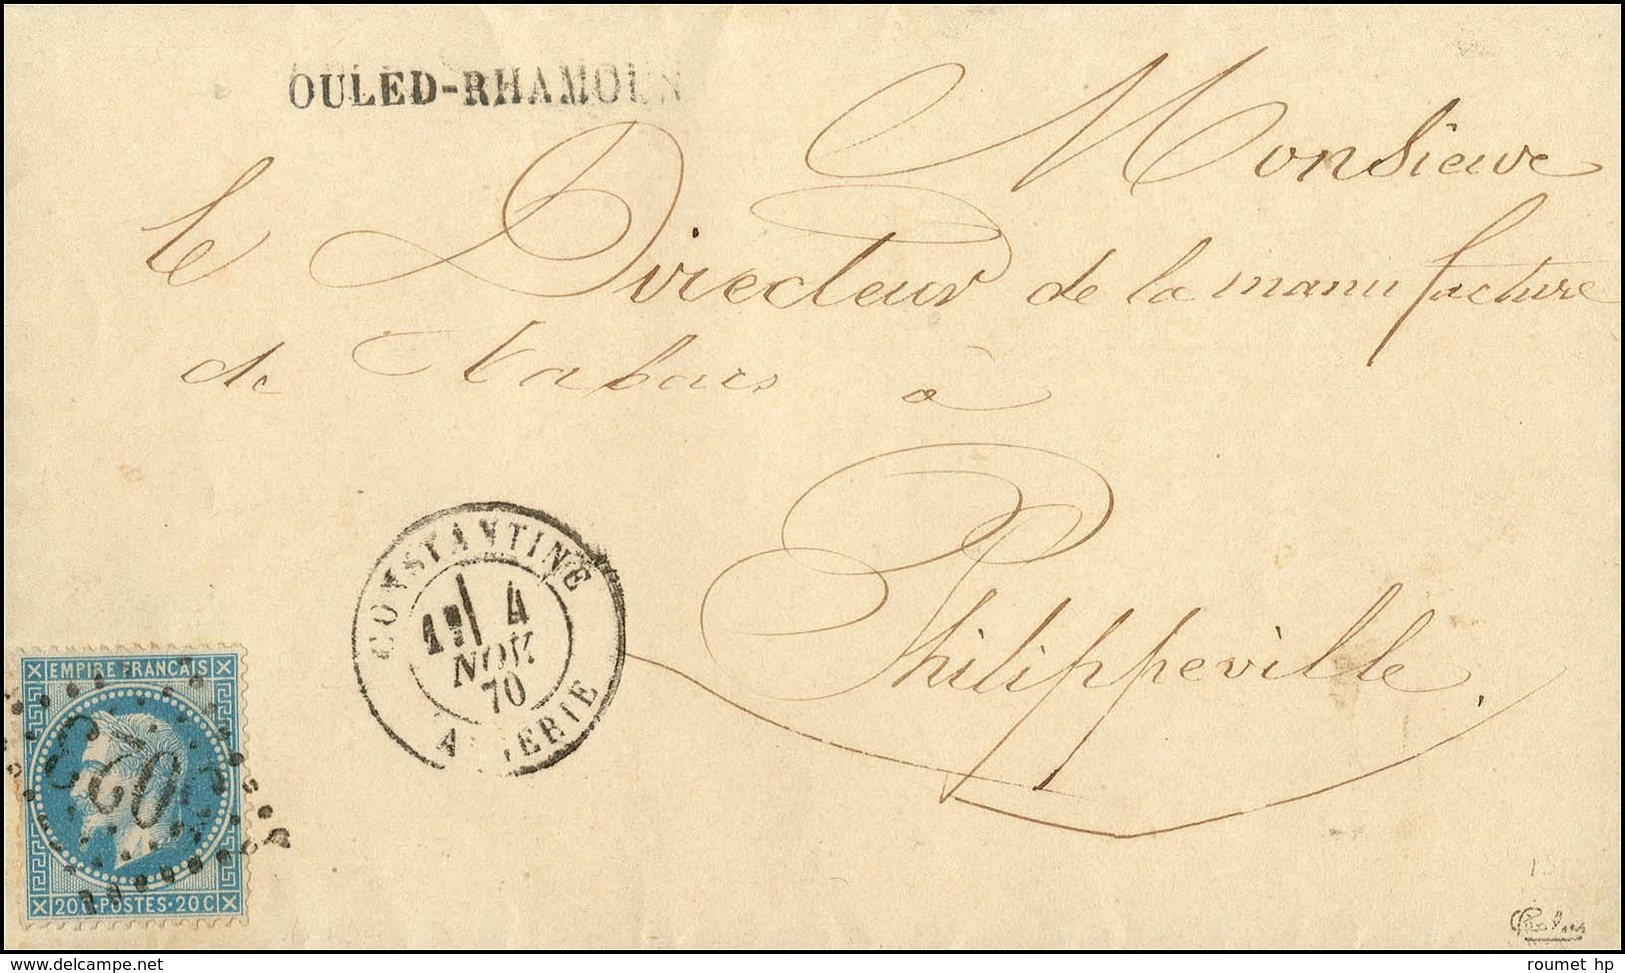 OULED-RHAMOUN
Monsieur
le Directeur de la manufacture
de tabacs à
Philippeville.
CONSTANTINE
1E 4
NOV.
70
ALGERIE
EMPIRE FRANCAIS
20 C POSTES 20 C
delcampe.net
roumet hp